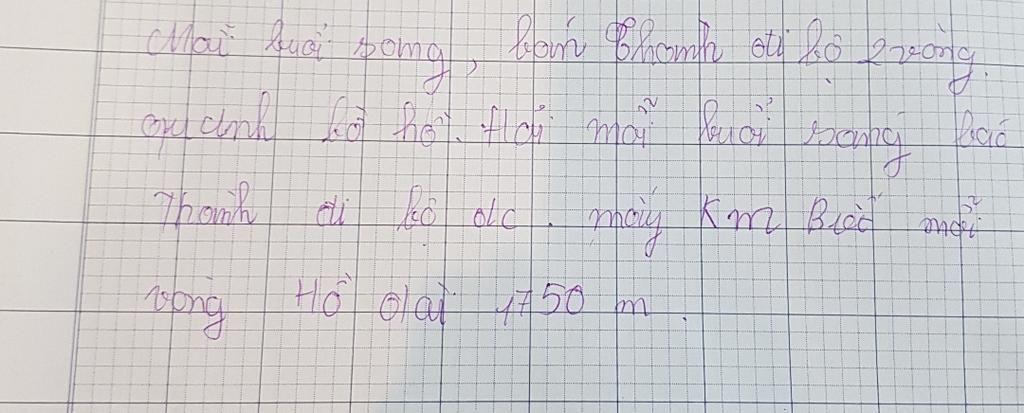 Mỗi buổi sáng, bác Thanh đi bộ 2 vòng
quanh bờ hồ. Hỏi mỗi buổi sáng bác
Thanh đi bộ đc mấy Km Biết mỗi
vòng Hồ dài 1750 m.